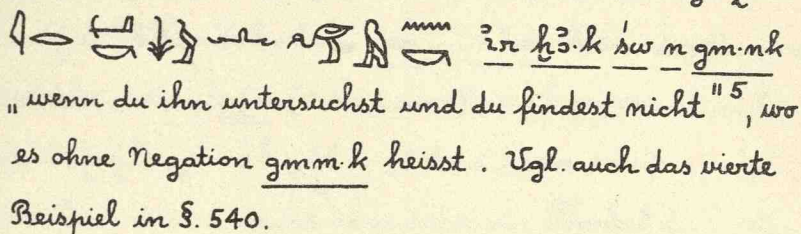 𓇋𓂋 𓄡𓎡 𓇓𓅱 𓂜 𓅠𓅓 𓈖𓎡 ꞽr ẖꜣ·k św n gm·nk
„wenn du ihn untersuchst und du findest nicht" 5, wo
es ohne Negation gmm·k heisst. Vgl. auch das vierte
Beispiel in §. 540.